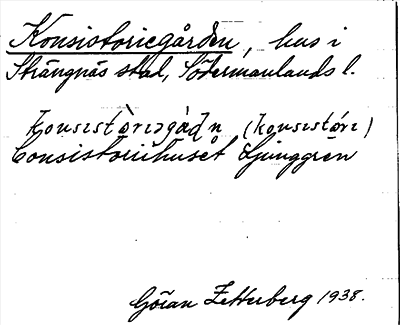 Konsistoriegården, hus i
Strängnäs stad, Södermanlands l.
(konsistóri)
Consistoriihuset Ljunggren
Göran Zetterberg 1938.